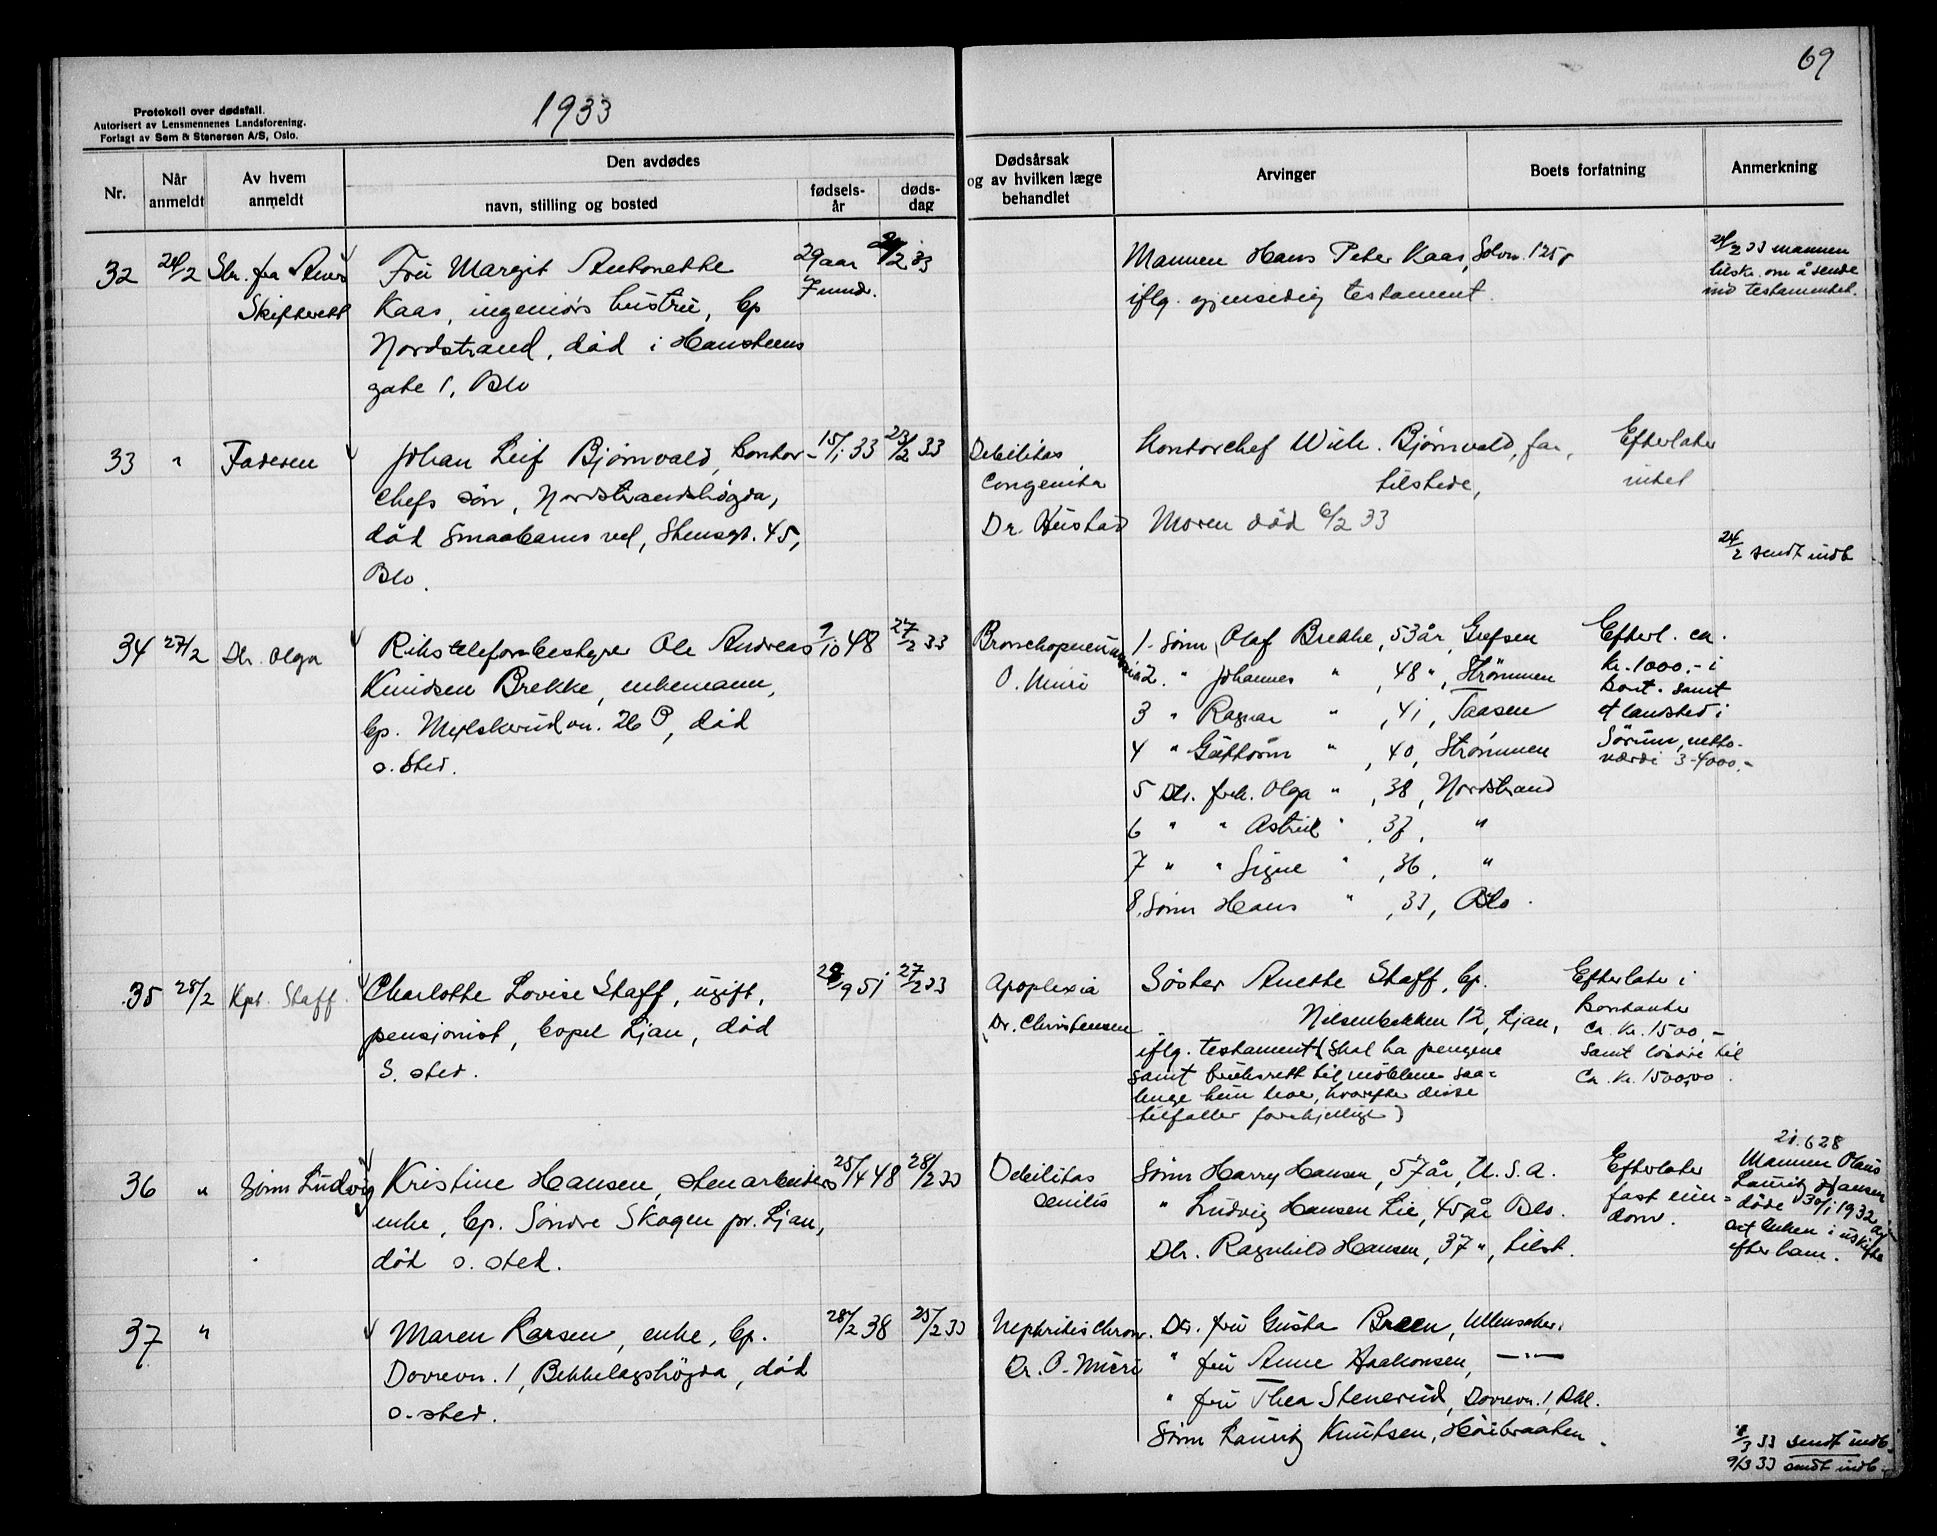 69
Protokoll over dødsfall.
Autorisert av Lensmennenes Landsforening.
Forlagt av Sem & Stenersen A/S, Oslo.
1933
Nr.
Når anmeldt
Av hvem anmeldt
Den avdødes
navn, stilling og bosted
fødsels-år
døds-dag
Dødsårsak og av hvilken læge behandlet
Arvinger
Boets forfatning
Anmerkning
32 24/2 Skr. fra
Skifterett
Fru Margit Antonette
Kaas, ingeniørs hustru, bp
Nordstrand, död i Hansteens
gate 1, Oslo
29 aar
7 mndr.
/2 33
Mannen Hans Peter Kaas, Solvn. 125,
iflg. gjensidig testament.
24/2 33 mannen
tilskr. om å sende
ind testamentet.
33 " Faderen
Johan Leif Bjørnvald, kontor-
chefs sön, Nordstrandshögda,
död Smaabarns vel, Stensgt. 45,
Oslo.
15/1 33 23/2 33
Debilitas
Congenita
Dr. Hustad
Kontorchef Wilh. Bjørnvald, far,
tilstede,
Moren död 6/2 33
Efterlater
intet
24/2 sendt indb
34 27/2 Dtr. Olga
Rikstelefonbestyrer Ole Andreas
Knudsen Brekke, enkemann,
bp. Mellskerudvn. 26 P, död
s. sted.
9/10 48 27/2 33
Bronchopneumonia
O. Muri
1. Sönn Olaf Brekke, 53 år, Grefsen
2. " Johannes " , 48 ", Strømmen
3 " Ragnar " , 41, Taasen
4 " Guthorm " , 40, Strømmen
5 Dtr. frk. Olga " , 38, Nordstrand
6 " " Astrid " , 37, "
7 " " Signe " , 36, "
8. Sönn Hans " , 33, Oslo.
Efterl. ca.
kr. 1000.- i
kont. samt
et landsted i
Sörum, netto-
værdi 3-4000.-
35 28/2 Kpt. Staff.
Charlotte Lovise Staff, ugift,
pensjonist, bopel Ljan, död
s. sted.
28/9 51 27/2 33
Apoplexia
Dr. Christensen
Söster Anette Staff, bp.
Nilsenbakken 12, Ljan,
iflg. testament (skal ha pengene
samt bruksrett til möblene saa-
lenge hun lever, hvorefter disse
tilfaller forskjellige)
Efterlater i
kontanter
ca. kr. 1500,-
samt lösöre til
ca. kr. 1500,00.
36 " Sönn Ludvig
Kristine Hansen, stenarbeiders
enke, bp. Söndre Skogen pr. Ljan,
död s. sted.
25/4 48 28/2 33
Debilitas
senilis
Sönn Harry Hansen, 57 år, U.S.A.
" Ludvig Hansen Lie, 45 år Oslo.
Dtr. Ragnhild Hansen, 37 ", tilst.
Efterlater
fast eien-
dom.
21.6 28
Mannen Olaus
Lauritz Hansen
döde 30/1 1932 og
sat enken i uskifte
efter ham.
37 "
Maren Larsen, enke, bp.
Dovrevn. 1, Bekkelagshögda, död
s. sted.
28/2 38 25/2 33
Nephritis chron.
Dr. O. Muri
Dtr. fru Gusta Breen, Ullensaker.
" fru Anne Haakonsen, —"—
" fru Thea Stenerud, Dovrevn. 1, Bkl.
Sönn Lauritz Knutsen, Höibraaten.
/3 33 sendt indb.
9/3 33 sendt indb.